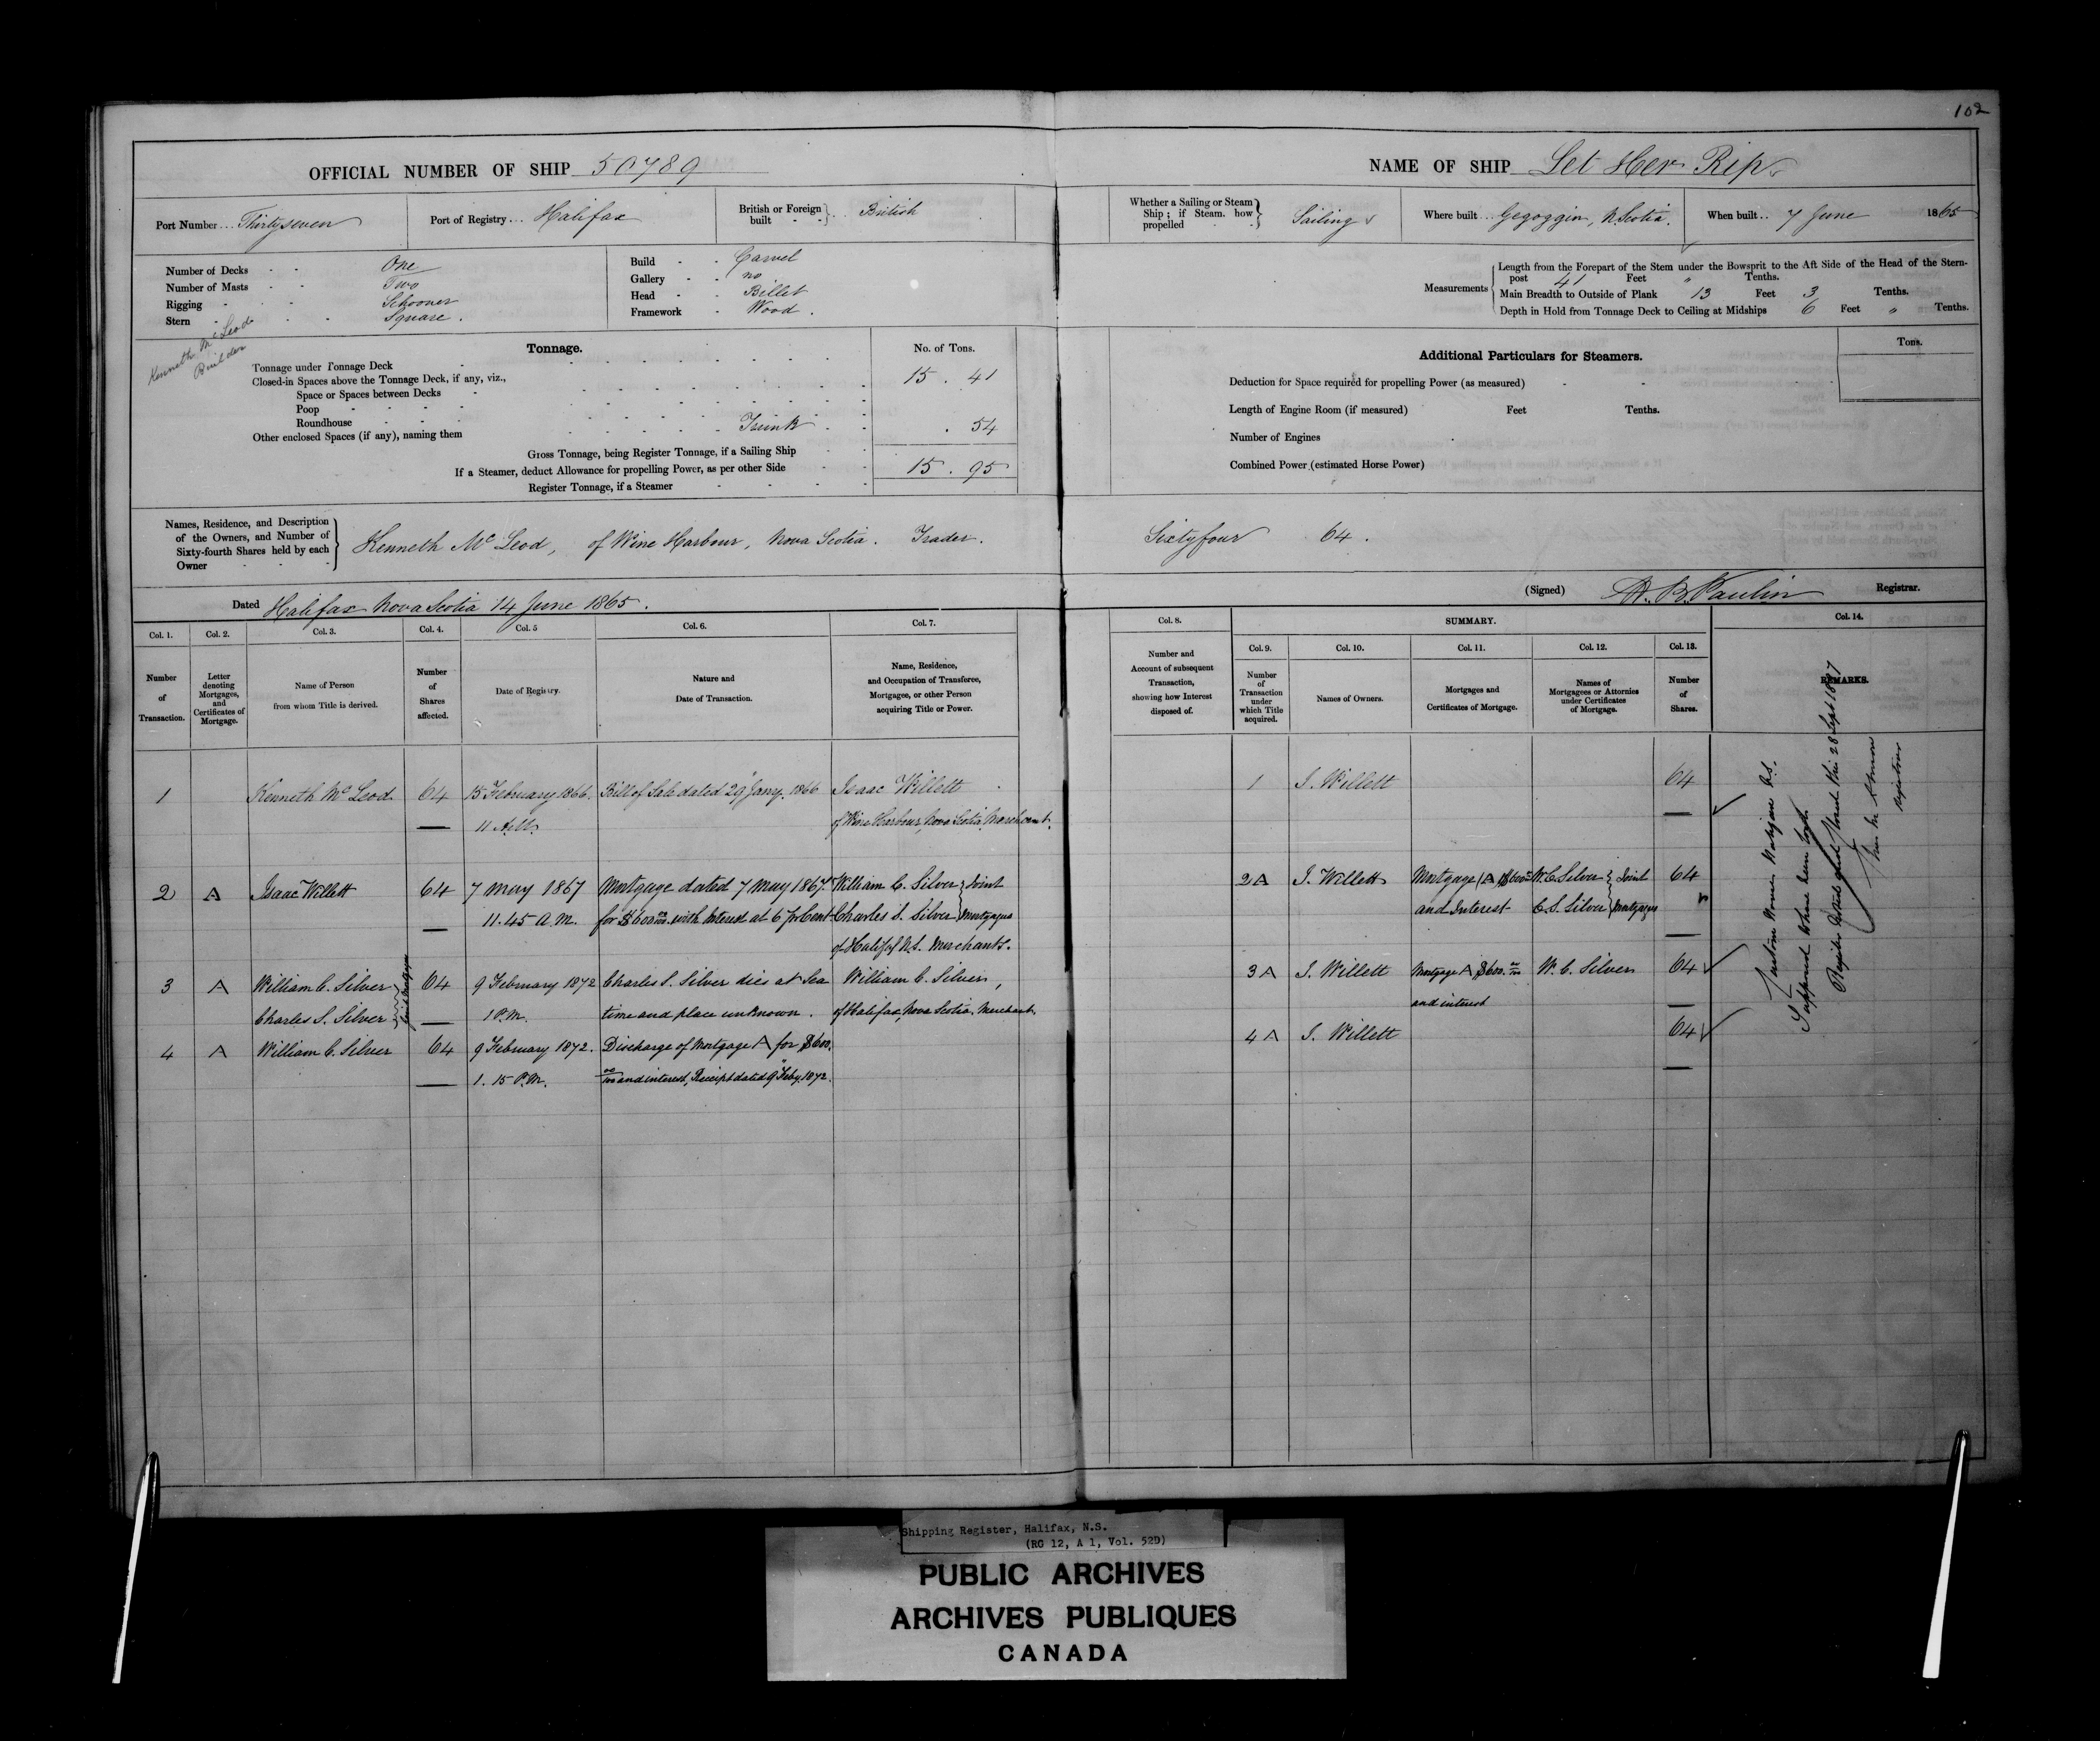 102
OFFICIAL NUMBER OF SHIP 50789
NAME OF SHIP Let Her Rip
Port Number ... Thirtyseven
Port of Registry ... Halifax
British or Foreign built - - } .. British
Whether a Sailing or Steam Ship; if Steam, how propelled - - } Sailing
Where built ... Gegoggin, N. Scotia.
When built .. 7 June 1865
Number of Decks - - One
Number of Masts - - Two
Rigging - - - Schooner
Stern - - - Square.
Build - - Carvel
Gallery - - no
Head - - Billet
Framework - Wood.
Measurements
Length from the Forepart of the Stem under the Bowsprit to the Aft Side of the Head of the Stern-
post 41 Feet " Tenths.
Main Breadth to Outside of Plank 13 Feet 3 Tenths.
Depth in Hold from Tonnage Deck to Ceiling at Midships 6 Feet " Tenths.
Kenneth McLeod
Builder
Tonnage.
No. of Tons.
Tonnage under Tonnage Deck 15 . 41
Closed-in Spaces above the Tonnage Deck, if any, viz.,
Space or Spaces between Decks
Poop
Roundhouse
Other enclosed Spaces (if any), naming them Trunk . 54
Gross Tonnage, being Register Tonnage, if a Sailing Ship 15 . 95
If a Steamer, deduct Allowance for propelling Power, as per other Side
Register Tonnage, if a Steamer
Additional Particulars for Steamers.
Tons.
Deduction for Space required for propelling Power (as measured)
Length of Engine Room (if measured) Feet Tenths.
Number of Engines
Combined Power (estimated Horse Power)
Names, Residence, and Description
of the Owners, and Number of
Sixty-fourth Shares held by each
Owner
Kenneth McLeod, of Wine Harbour, Nova Scotia. Trader. Sixtyfour 64.
Dated Halifax Nova Scotia 14 June 1865.
(Signed) H. B. Paulin Registrar.
Col. 1. Col. 2. Col. 3. Col. 4. Col. 5 Col. 6. Col. 7. Col. 8. SUMMARY. Col. 14.
Col. 9. Col. 10. Col. 11. Col. 12. Col. 13.
Number of Transaction.
Letter denoting Mortgages, and Certificates of Mortgage.
Name of Person from whom Title is derived.
Number of Shares affected.
Date of Registry.
Nature and Date of Transaction.
Name, Residence, and Occupation of Transferee, Mortgagee, or other Person acquiring Title or Power.
Number and Account of subsequent Transaction, showing how Interest disposed of.
Number of Transaction under which Title acquired.
Names of Owners.
Mortgages and Certificates of Mortgage.
Names of Mortgagees or Attornies under Certificates of Mortgage.
Number of Shares.
REMARKS.
1 Kenneth McLeod 64 15 February 1866. Bill of Sale dated 29 Jany. 1866 Isaac Willett
11 A.M. of Wine Harbour, Nova Scotia, Merchant.
1 I. Willett 64
2 A Isaac Willett 64 7 May 1867 Mortgage dated 7 May 1867. William C. Silver } Joint
11.45 A.M. for $600 00/100 with Interest at 6 pr Cent Charles S. Silver } Mortgagees
of Halifax N.S. Merchants.
2 A I. Willett Mortgage (A) $600 W. C. Silver } Joint 64
and Interest C. S. Silver } Mortgagees
3 A William C. Silver } Joint Mortgagees 64 9 February 1872 Charles S. Silver died at Sea William C. Silver,
Charles S. Silver 1 P.M. time and place unknown. of Halifax, Nova Scotia, Merchant.
3 A I. Willett Mortgage A $600. 00/100 W. C. Silver 64
and interest
4 A William C. Silver 64 9 February 1872. Discharge of Mortgage A for $600.
1. 15 P.M. 00/100 and interest, Receipt dated 9 Feby. 1872.
4 A I. Willett 64
Supposed to have been lost
Register closed this 28 Sept 1887
Registrar
Shipping Register, Halifax, N.S.
(RG 12, A 1, Vol. 52D)
PUBLIC ARCHIVES
ARCHIVES PUBLIQUES
CANADA